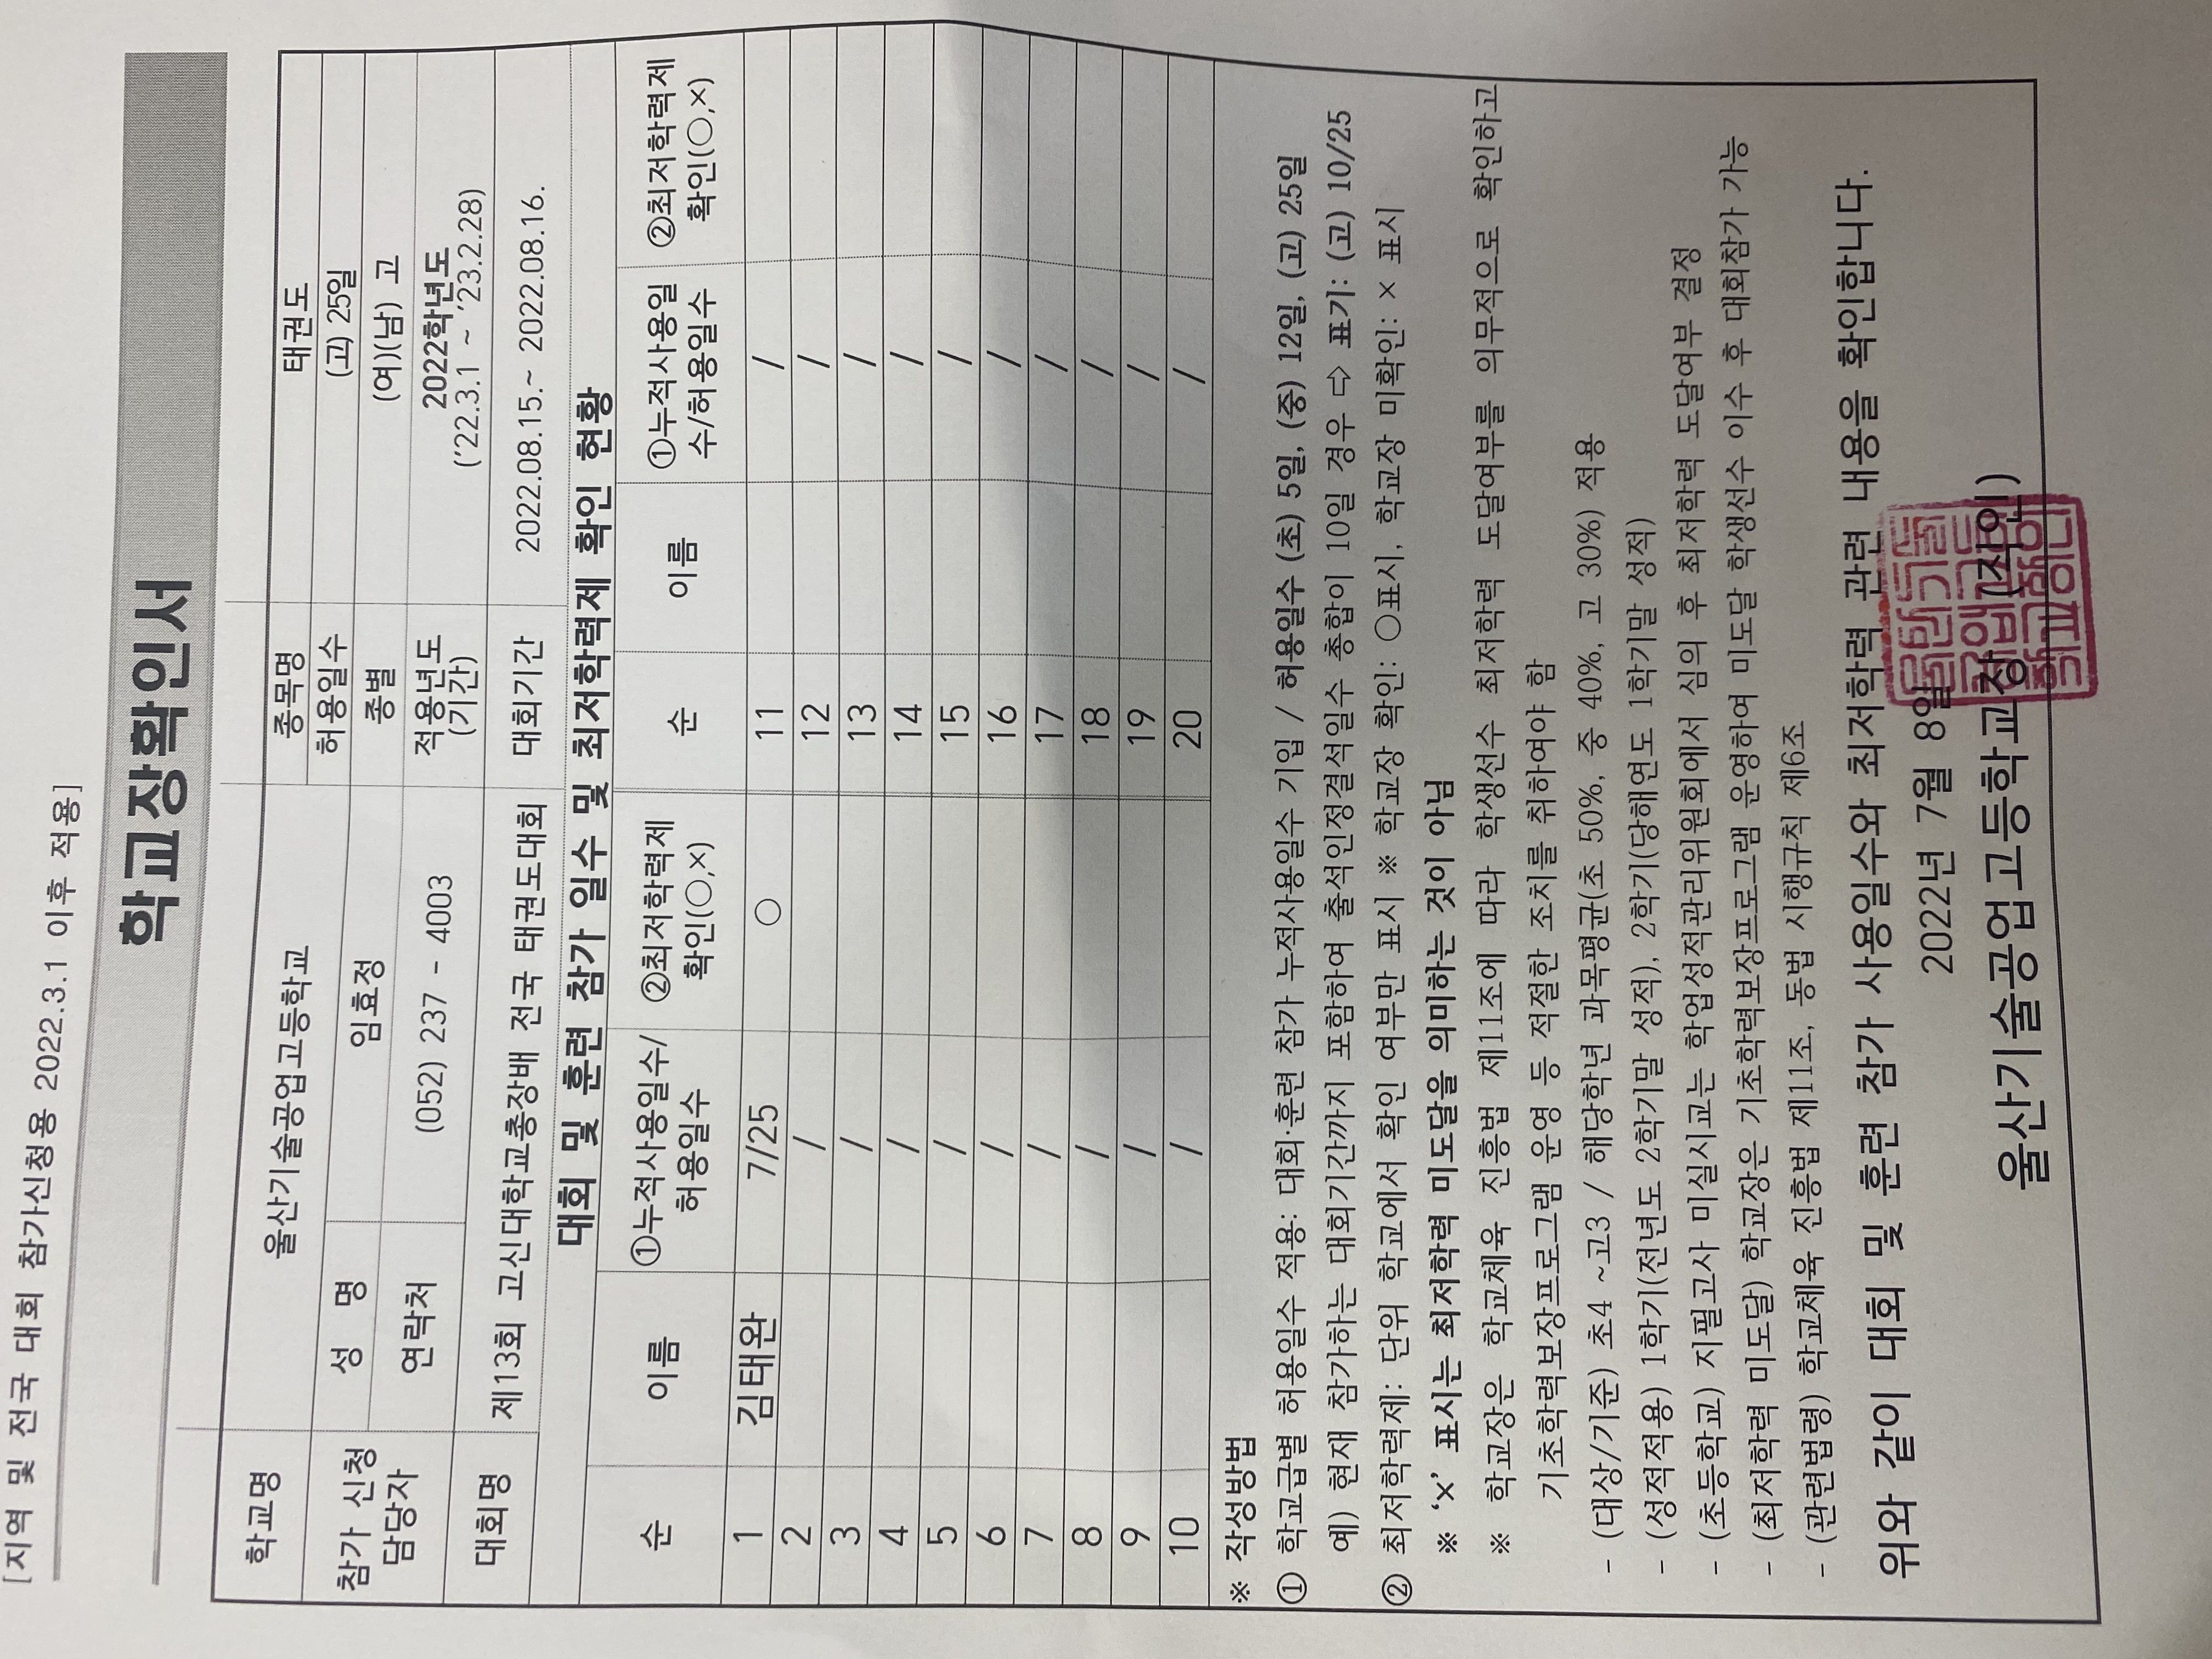 [지역 및 전국 대회 참가신청용 2022.3.1 이후 적용]
학교장확인서
학교명 울산기술공업고등학교 종목명 태권도
허용일수 (고) 25일
참가 신청 담당자 성 명 임효정 종별 (여)(남) 고
연락처 (052) 237 - 4003 적용년도 (기간) 2022학년도 ('22.3.1 ~ '23.2.28)
대회명 제13회 고신대학교총장배 전국 태권도대회 대회기간 2022.08.15.~ 2022.08.16.
대회 및 훈련 참가 일수 및 최저학력제 확인 현황
순 이름 ①누적사용일수/허용일수 ②최저학력제 확인(○,×) 순 이름 ①누적사용일수/허용일수 ②최저학력제 확인(○,×)
1 김태완 7/25 ○ 11 /
2 / 12 /
3 / 13 /
4 / 14 /
5 / 15 /
6 / 16 /
7 / 17 /
8 / 18 /
9 / 19 /
10 / 20 /
※ 작성방법
① 학교급별 허용일수 적용: 대회·훈련 참가 누적사용일수 기입 / 허용일수 (초) 5일, (중) 12일, (고) 25일
예) 현재 참가하는 대회기간까지 포함하여 출석인정결석일수 총합이 10일 경우 ⇨ 표기: (고) 10/25
② 최저학력제: 단위 학교에서 확인 여부만 표시 ※ 학교장 확인: ○표시, 학교장 미확인: × 표시
※ '×' 표시는 최저학력 미도달을 의미하는 것이 아님
※ 학교장은 학교체육 진흥법 제11조에 따라 학생선수 최저학력 도달여부를 의무적으로 확인하고
기초학력보장프로그램 운영 등 적절한 조치를 취하여야 함
- (대상/기준) 초4 ~고3 / 해당학년 과목평균(초 50%, 중 40%, 고 30%) 적용
- (성적적용) 1학기(전년도 2학기말 성적), 2학기(당해연도 1학기말 성적)
- (초등학교) 지필고사 미실시교는 학업성적관리위원회에서 심의 후 최저학력 도달여부 결정
- (최저학력 미도달) 학교장은 기초학력보장프로그램 운영하여 미도달 학생선수 이수 후 대회참가 가능
- (관련법령) 학교체육 진흥법 제11조, 동법 시행규칙 제6조
위와 같이 대회 및 훈련 참가 사용일수와 최저학력 관련 내용을 확인합니다.
2022년 7월 8일
울산기술공업고등학교장 (직인)